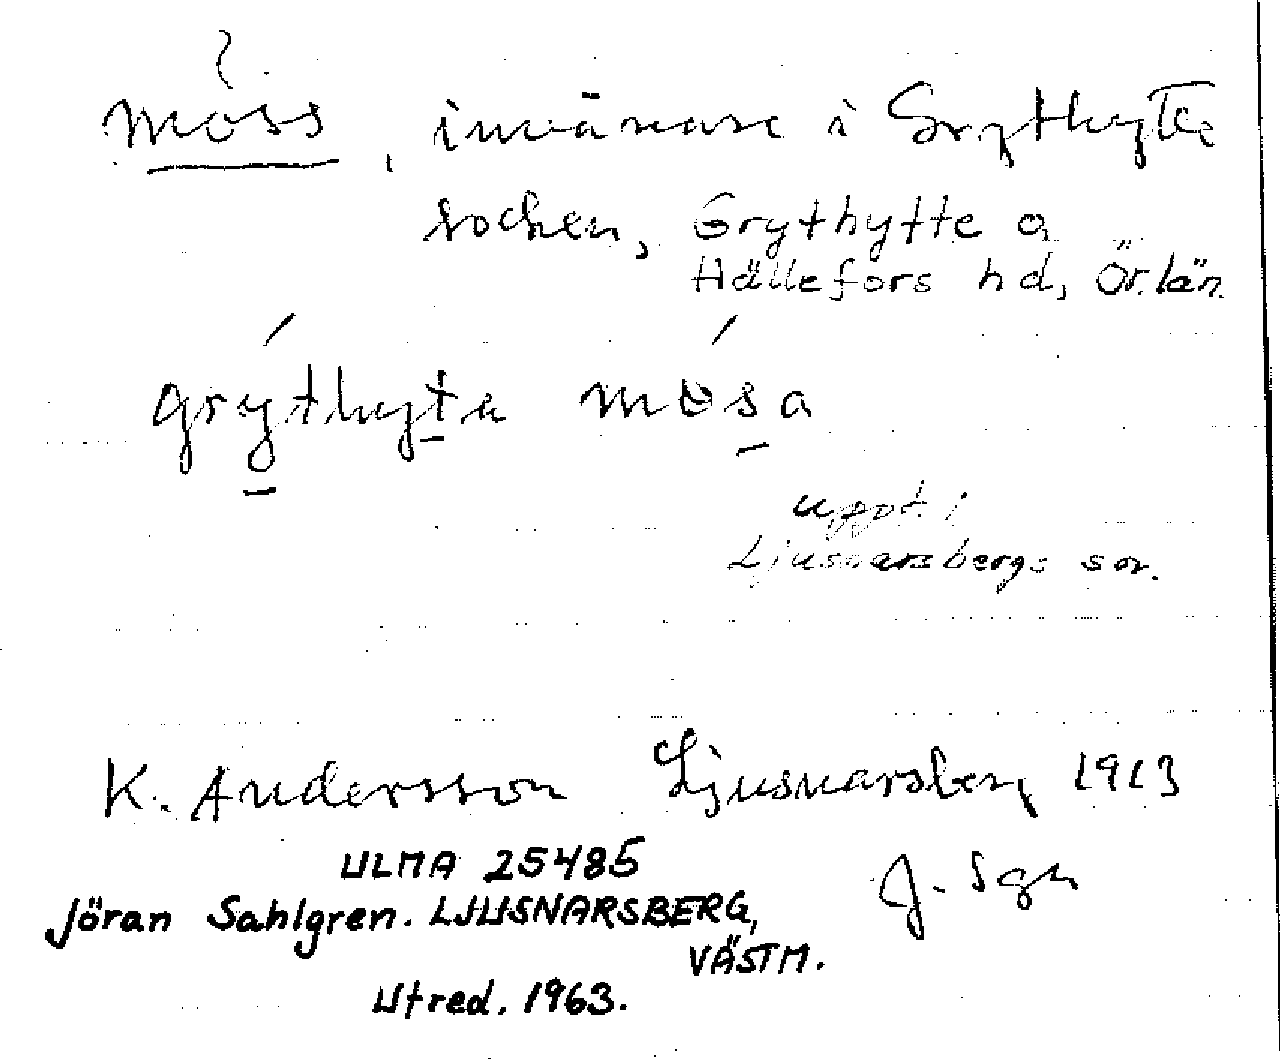 ?
möss, invånare i Grythytte
socken, Grythytte o
Hällefors hd, Ör. län.
grýthyta mósa
uppt. i
Ljusnarsbergs sn.
K. Andersson Ljusnarsberg 1913
J. Sgn
ULMA 25485
Jöran Sahlgren. LJUSNARSBERG,
VÄSTM.
Utred. 1963.